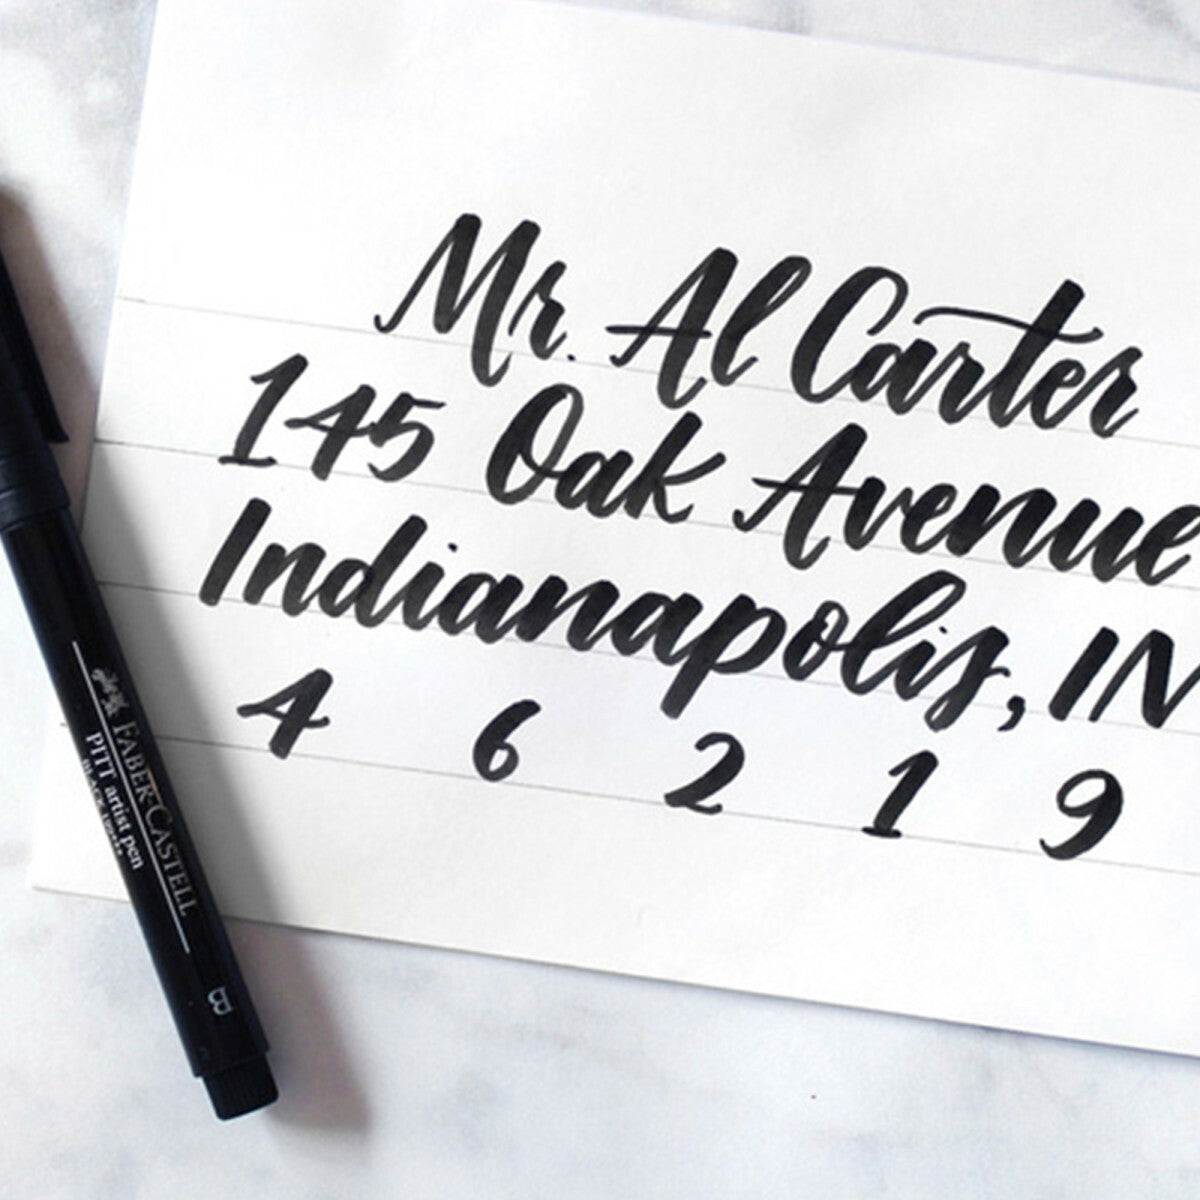 Mr. Al Carter
145 Oak Avenue
Indianapolis, IN
4 6 2 1 9
FABER-CASTELL
PITT artist pen
B